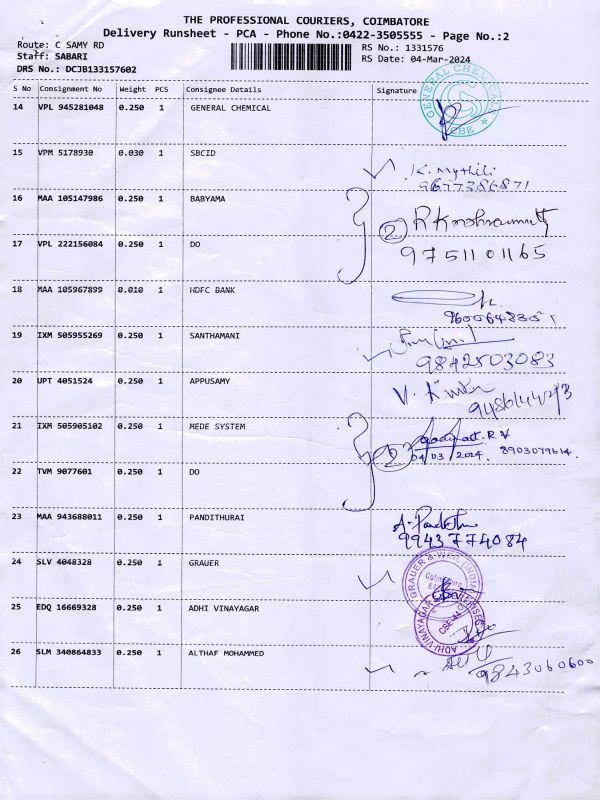 THE PROFESSIONAL COURIERS, COIMBATORE
Delivery Runsheet - PCA - Phone No.:0422-3505555 - Page No.:2
Route: C SAMY RD
RS No.: 1331576
Staff: SABARI
RS Date: 04-Mar-2024
DRS No.: DCJB133157602
S No Consignment No Weight PCS Consignee Details Signature
14 VPL 945281048 0.250 1 GENERAL CHEMICAL
GENERAL CHEMICAL CBE
15 VPM 5178930 0.030 1 SBCID
K. Mythili
9677386871
16 MAA 105147986 0.250 1 BABYAMA
2
17 VPL 222156084 0.250 1 DO
9751101165
18 MAA 105967899 0.010 1 HDFC BANK
19 IXM 505955269 0.250 1 SANTHAMANI
9842503083
20 UPT 4051524 0.250 1 APPUSAMY
21 IXM 505905102 0.250 1 MEDE SYSTEM
2
04/03/2024. 8903079614.
22 TVM 9077601 0.250 1 DO
23 MAA 943688011 0.250 1 PANDITHURAI
9943774084
24 SLV 4048328 0.250 1 GRAUER
GRAUER & WEIL (INDIA)
25 EDQ 16669328 0.250 1 ADHI VINAYAGAR
ADHI VINAYAGAR
26 SLM 340864833 0.250 1 ALTHAF MOHAMMED
9843060600